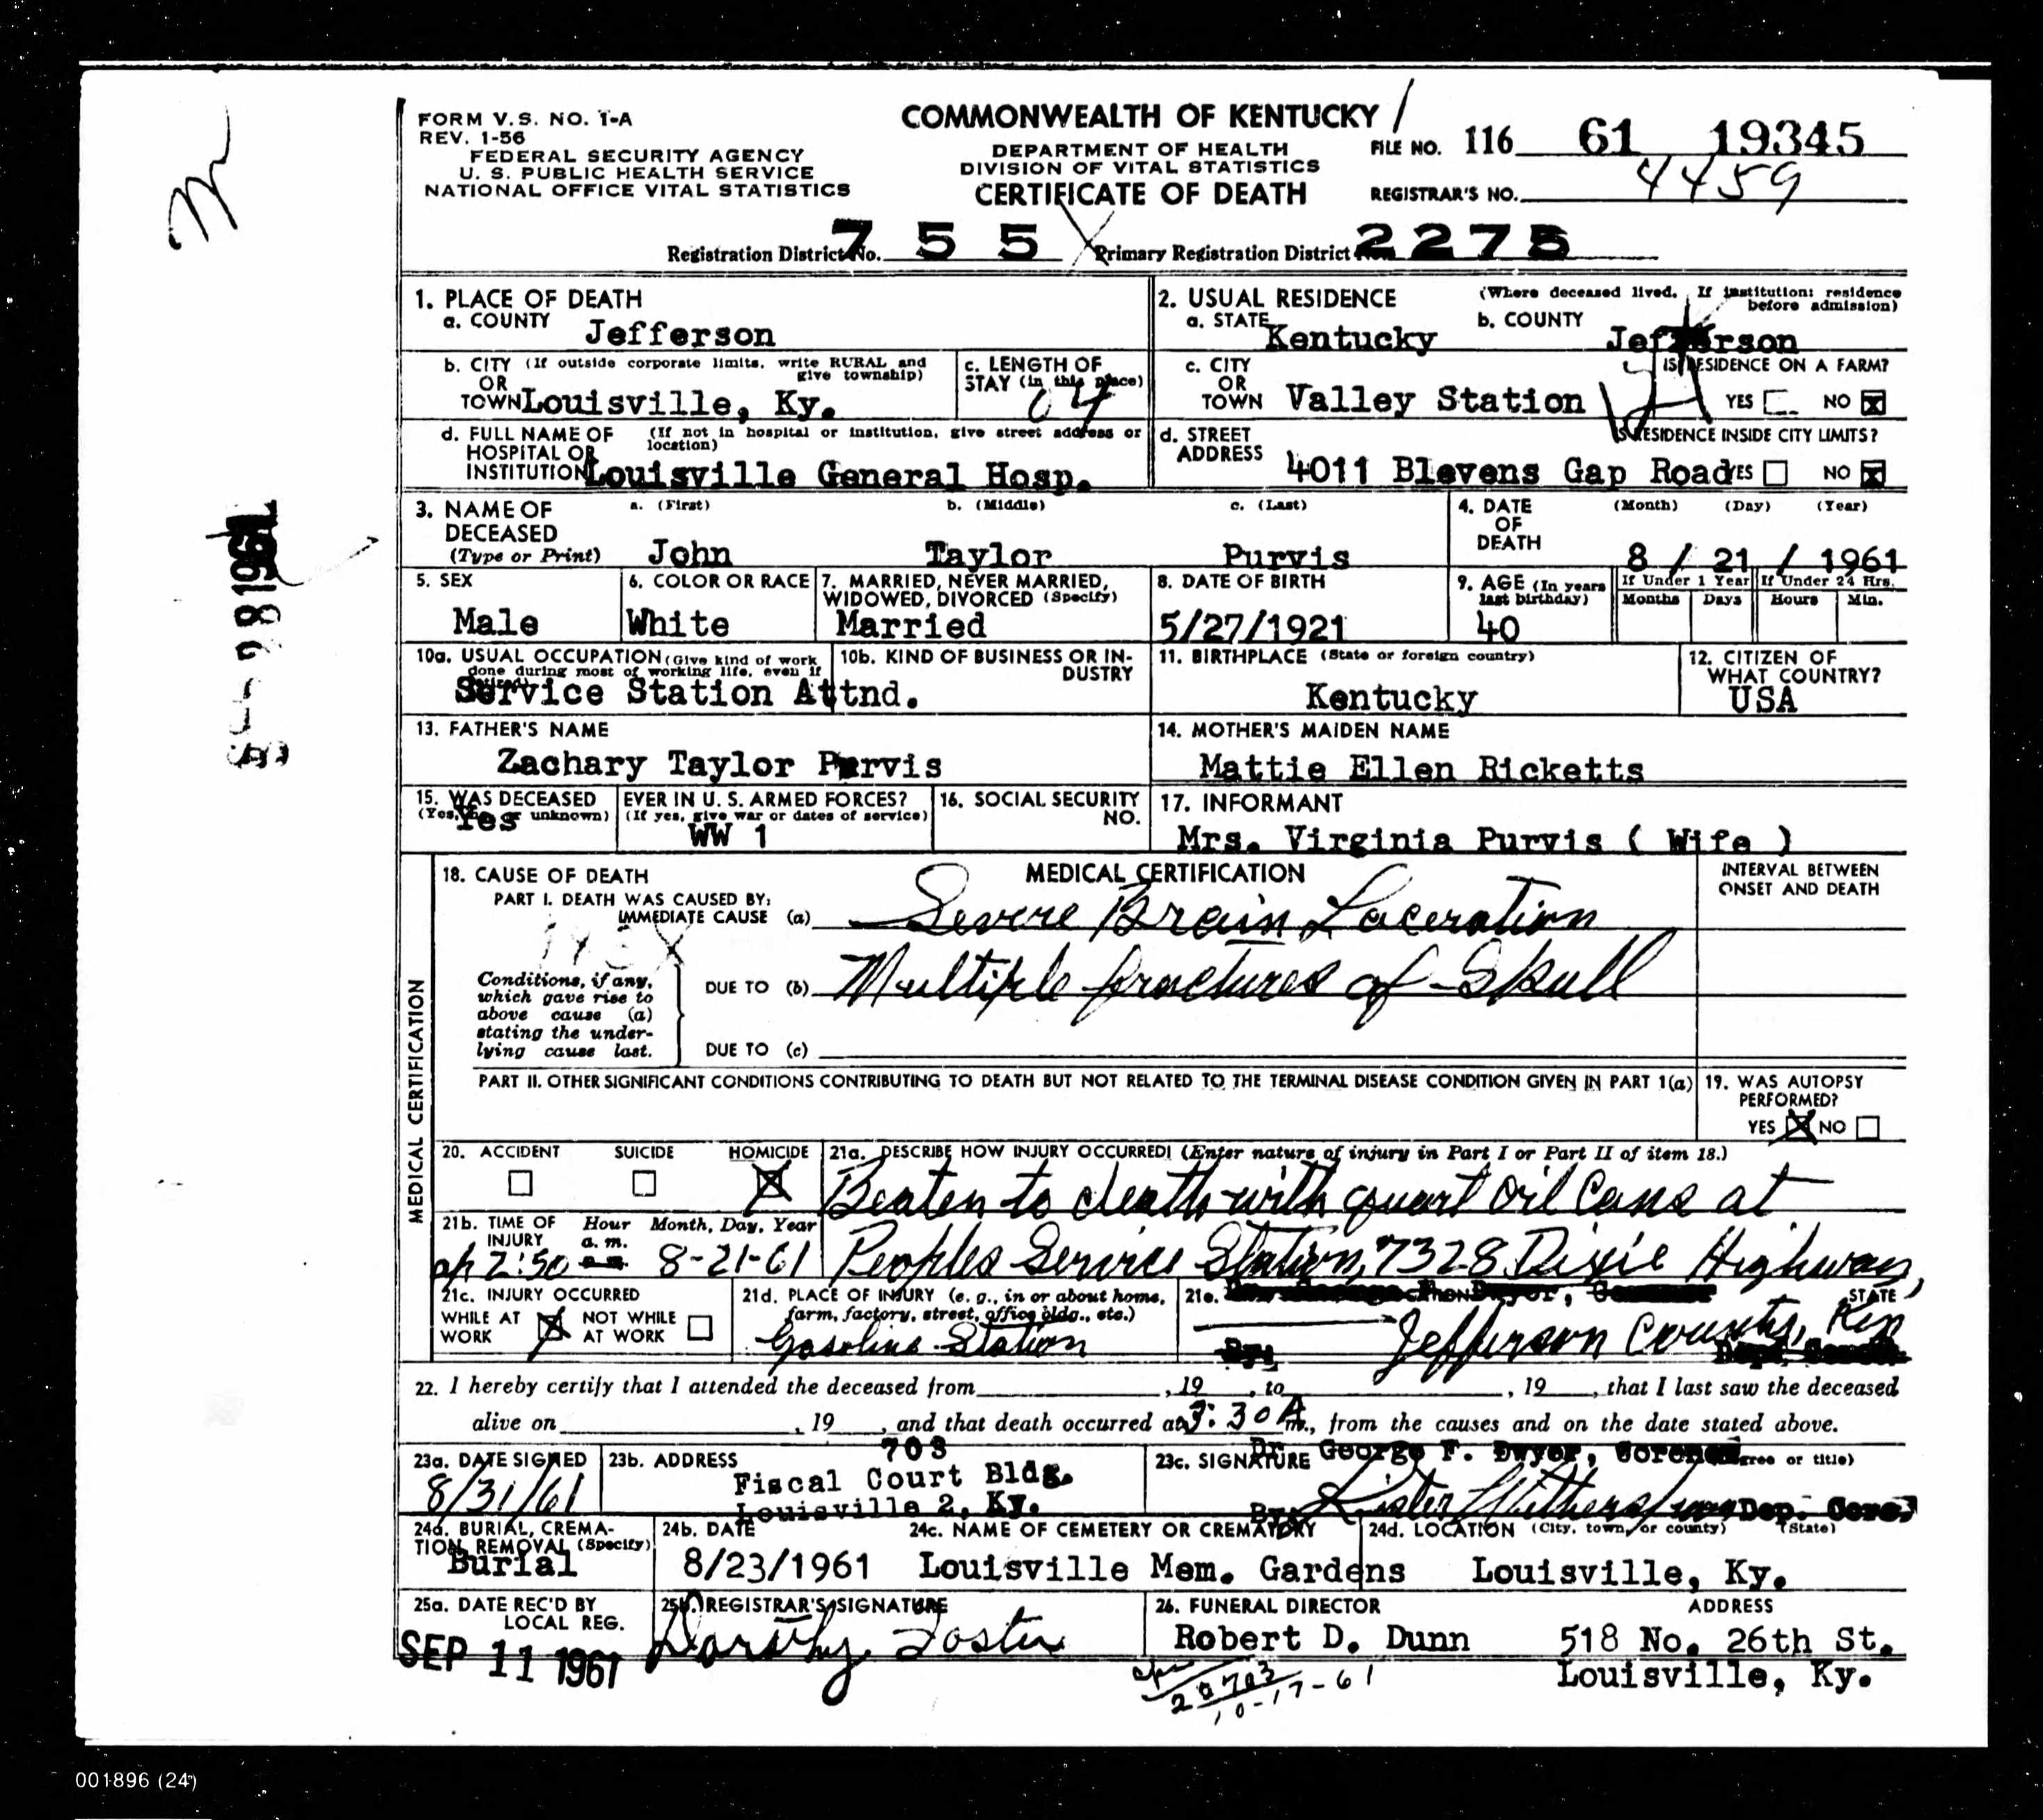 FORM V.S. NO. 1-A
REV. 1-56
FEDERAL SECURITY AGENCY
U. S. PUBLIC HEALTH SERVICE
NATIONAL OFFICE VITAL STATISTICS
COMMONWEALTH OF KENTUCKY
DEPARTMENT OF HEALTH
DIVISION OF VITAL STATISTICS
CERTIFICATE OF DEATH
FILE NO. 116 61 19345
REGISTRAR'S NO. 4459
Registration District No. 755 Primary Registration District 2275
1. PLACE OF DEATH
a. COUNTY Jefferson
2. USUAL RESIDENCE (Where deceased lived. If institution: residence before admission)
a. STATE Kentucky b. COUNTY Jefferson
b. CITY (If outside corporate limits, write RURAL and give township)
OR
TOWN Louisville, Ky.
c. LENGTH OF STAY (in this place)
04
c. CITY OR TOWN Valley Station
IS RESIDENCE ON A FARM?
YES NO X
d. FULL NAME OF HOSPITAL OR INSTITUTION (If not in hospital or institution, give street address or location)
Louisville General Hosp.
d. STREET ADDRESS 4011 Blevens Gap Road
IS RESIDENCE INSIDE CITY LIMITS?
YES NO X
3. NAME OF DECEASED (Type or Print)
a. (First) b. (Middle) c. (Last)
John Taylor Purvis
4. DATE OF DEATH (Month) (Day) (Year)
8 / 21 / 1961
5. SEX
Male
6. COLOR OR RACE
White
7. MARRIED, NEVER MARRIED, WIDOWED, DIVORCED (Specify)
Married
8. DATE OF BIRTH
5/27/1921
9. AGE (In years last birthday)
40
If Under 1 Year If Under 24 Hrs.
Months Days Hours Min.
10a. USUAL OCCUPATION (Give kind of work done during most of working life, even if
Service Station Attnd.
10b. KIND OF BUSINESS OR INDUSTRY
11. BIRTHPLACE (State or foreign country)
Kentucky
12. CITIZEN OF WHAT COUNTRY?
USA
13. FATHER'S NAME
Zachary Taylor Purvis
14. MOTHER'S MAIDEN NAME
Mattie Ellen Ricketts
15. WAS DECEASED EVER IN U. S. ARMED FORCES?
(Yes, no or unknown) (If yes, give war or dates of service)
Yes WW 1
16. SOCIAL SECURITY NO.
17. INFORMANT
Mrs. Virginia Purvis ( Wife )
MEDICAL CERTIFICATION
18. CAUSE OF DEATH
MEDICAL CERTIFICATION
INTERVAL BETWEEN ONSET AND DEATH
PART I. DEATH WAS CAUSED BY:
IMMEDIATE CAUSE (a) Severe Brain Laceration
Conditions, if any, which gave rise to above cause (a) stating the underlying cause last.
DUE TO (b) Multiple fractures of Skull
DUE TO (c)
PART II. OTHER SIGNIFICANT CONDITIONS CONTRIBUTING TO DEATH BUT NOT RELATED TO THE TERMINAL DISEASE CONDITION GIVEN IN PART 1(a)
19. WAS AUTOPSY PERFORMED?
YES X NO
20. ACCIDENT SUICIDE HOMICIDE X
21a. DESCRIBE HOW INJURY OCCURRED! (Enter nature of injury in Part I or Part II of item 18.)
Beaten to death with quart oil cans at
Peoples Service Station, 7328 Dixie Highway,
21b. TIME OF INJURY Hour a. m. Month, Day, Year
2:50 8-21-61
21c. INJURY OCCURRED
WHILE AT WORK X NOT WHILE AT WORK
21d. PLACE OF INJURY (e. g., in or about home, farm, factory, street, office bldg., etc.)
Gasoline Station
21e. STATE
Jefferson County, Ken
22. I hereby certify that I attended the deceased from , 19 , to , 19 , that I last saw the deceased
alive on , 19 , and that death occurred at 3:30 A m., from the causes and on the date stated above.
23a. DATE SIGNED
8/31/61
23b. ADDRESS
703
Fiscal Court Bldg.
Louisville 2, Ky.
23c. SIGNATURE Dr. George F. Dwyer, Coroner (Degree or title)
By: Dep. Coro.
24a. BURIAL, CREMATION, REMOVAL (Specify)
Burial
24b. DATE
8/23/1961
24c. NAME OF CEMETERY OR CREMATORY
Louisville Mem. Gardens
24d. LOCATION (City, town, or county) (State)
Louisville, Ky.
25a. DATE REC'D BY LOCAL REG.
SEP 11 1961
25b. REGISTRAR'S SIGNATURE
Dorothy Foster
26. FUNERAL DIRECTOR ADDRESS
Robert D. Dunn 518 No. 26th St.
Louisville, Ky.
20703
10-17-61
001896 (24)